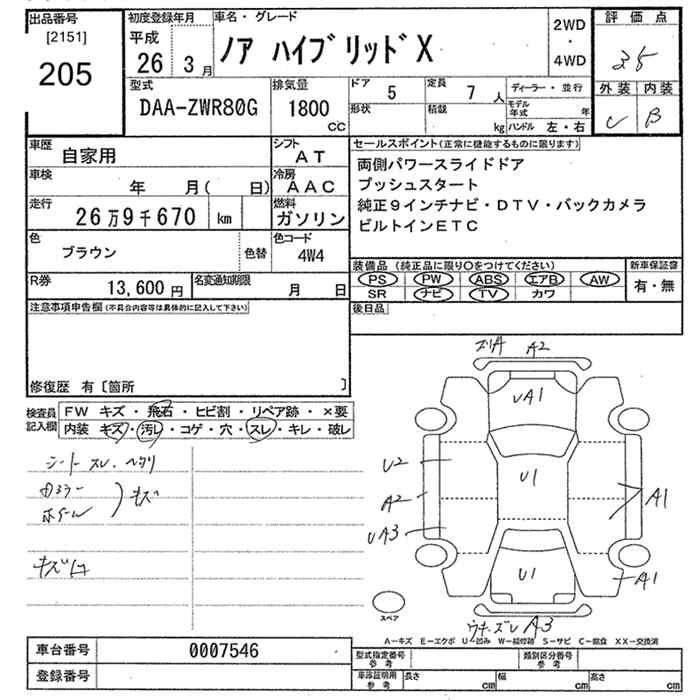 出品番号
[2151]
205
初度登録年月
平成
26 3月
車名・グレード
ノア ハイブリッドX
2WD
・
4WD
評価点
外装 内装
C B
型式
DAA-ZWR80G
排気量
1800
CC
ドア
5
定員
7 人
形状
積載
kg
ディーラー・並行
モデル年式 年
ハンドル 左・右
車歴 自家用
シフト AT
車検 年 月( 日)
冷房 AAC
走行 26万9千670 km
燃料 ガソリン
色 ブラウン 色替
色コード 4W4
R券 13,600円
名変通知期限 月 日
注意事項申告欄(不具合内容等は具体的に記入して下さい)
修復歴 有〔箇所 〕
セールスポイント(正常に機能するものに限ります)
両側パワースライドドア
プッシュスタート
純正9インチナビ・DTV・バックカメラ
ビルトインETC
装備品(純正品に限り○をつけてください)
PS PW ABS エアB AW
SR ナビ TV カワ
新車保証書
有・無
後日品
検査員記入欄
FW キズ・飛石・ヒビ割・リペア跡・×要
内装 キズ・汚レ・コゲ・穴・スレ・キレ・破レ
シートスレ.ヘタリ
ホイール キズ
A2
UA1
U2
U1
A2
A1
UA3
U1
A1
A3
スペア
A-キズ E-エクボ U-凹み W-補修跡 S-サビ C-腐食 XX-交換済
車台番号 0007546
登録番号
型式指定番号 参考
類別区分番号 参考
車庫証明用 参考
長さ cm
幅 cm
高さ cm